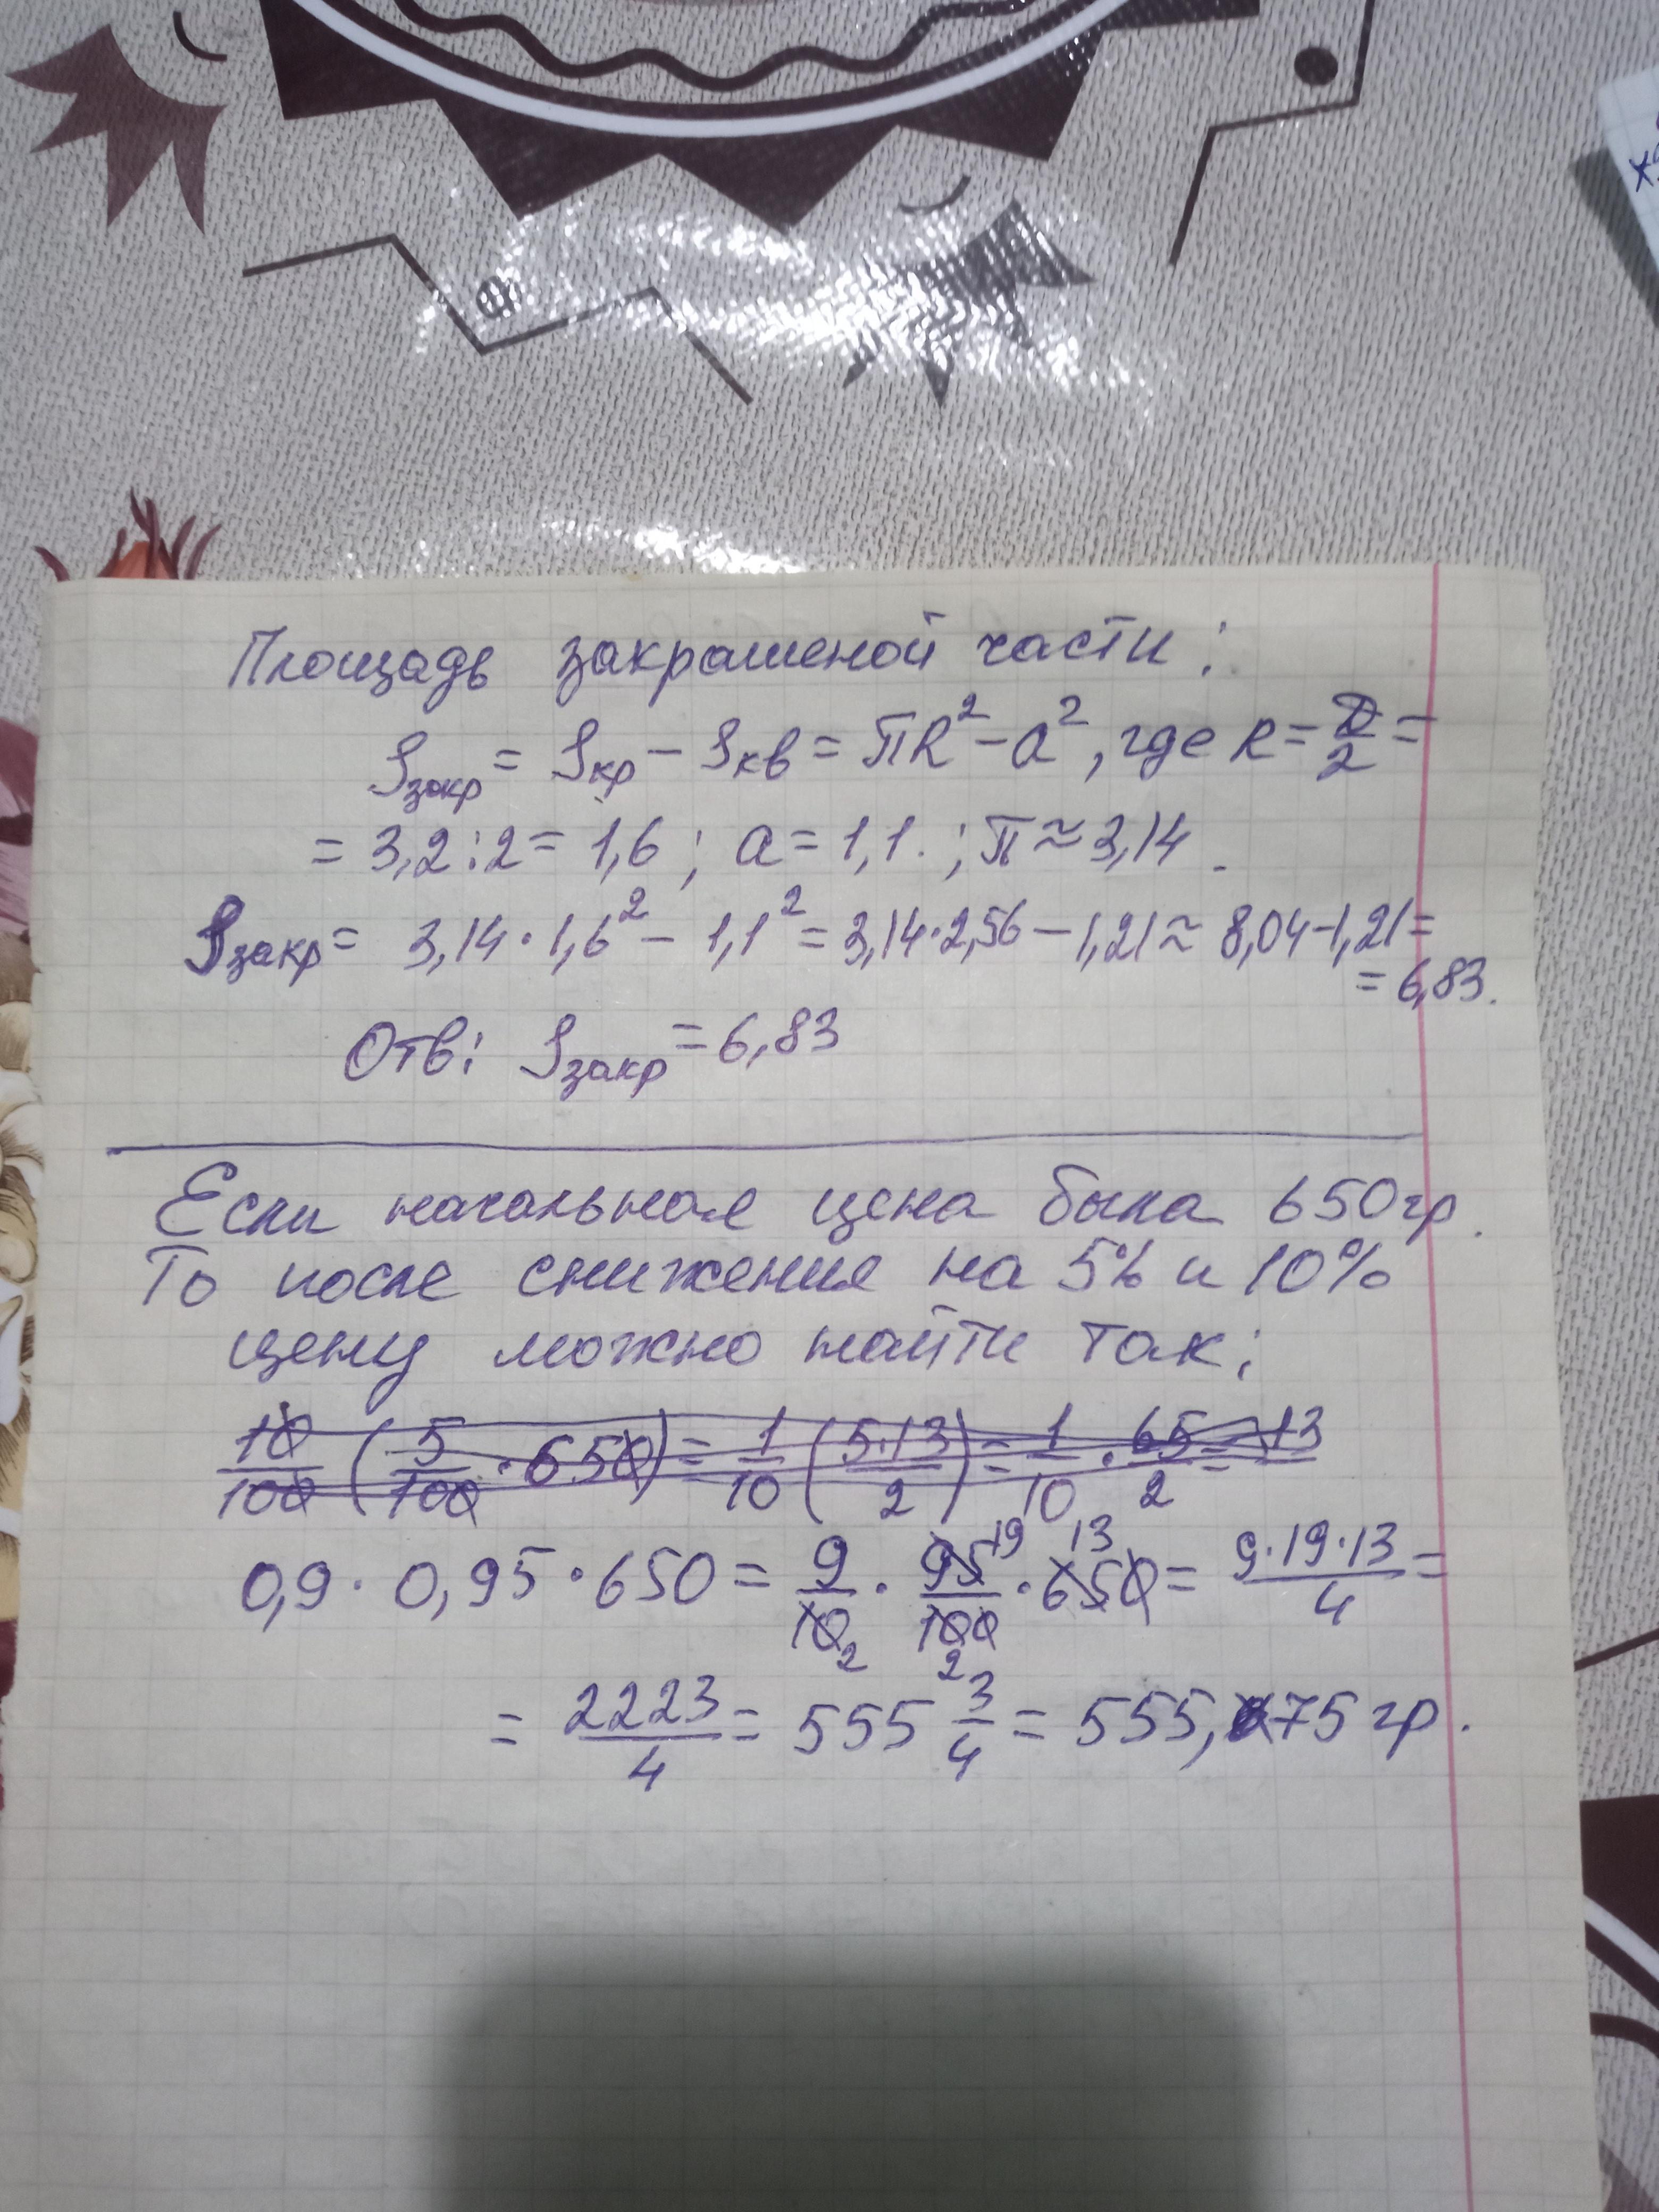 Площадь закрашеной части:
Sзакр = Sкр − Sкв = πR² − a², где R = D/2 =
= 3,2:2 = 1,6 ; a = 1,1. ; π ≈ 3,14.
Sзакр = 3,14 · 1,6² − 1,1² = 3,14 · 2,56 − 1,21 ≈ 8,04 − 1,21 =
= 6,83.
Отв: Sзакр = 6,83
Если начальная цена была 650 гр.
То после снижения на 5% и 10%
цену можно найти так:
10/100 (5/100 · 650) = 1/10 (5·13/2) = 1/10 · 65/2 = 13
0,9 · 0,95 · 650 = 9/10 2 · 95 19/100 2 · 650 13 = 9·19·13/4 =
= 2223/4 = 555 3/4 = 555,75 гр.